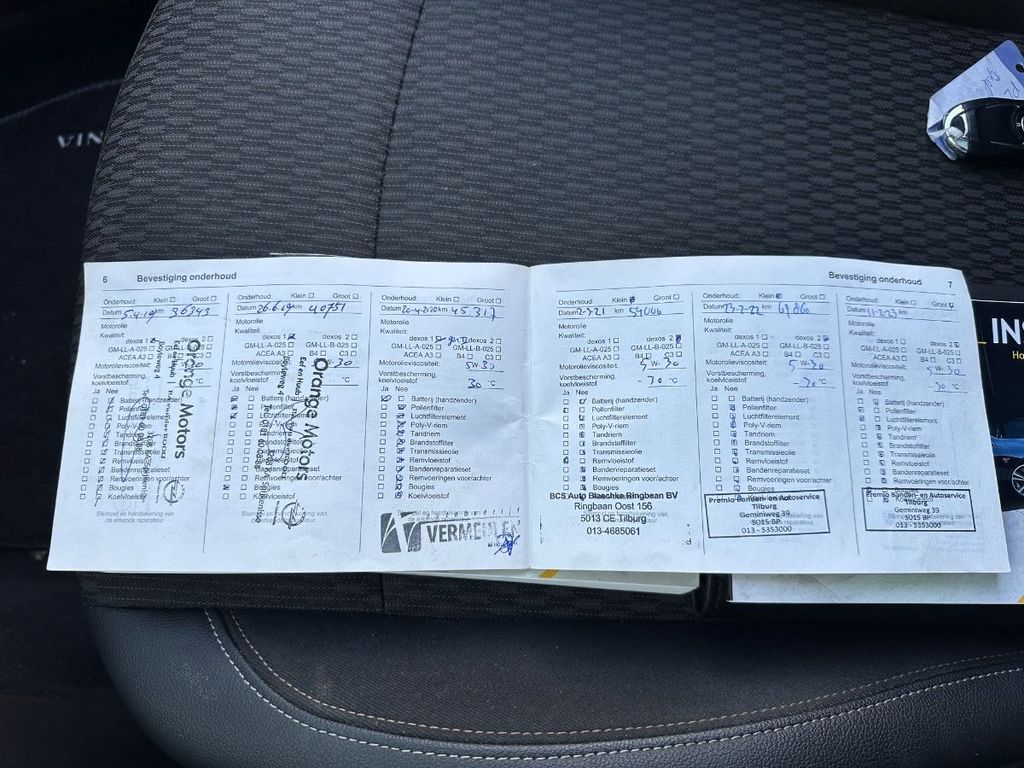 6 Bevestiging onderhoud
Onderhoud: Klein Groot
Datum 5-4-19 km 36343
Motorolie
Kwaliteit:
dexos 1 dexos 2
GM-LL-A-025 GM-LL-B-025
ACEA A3 B4 C3
Motorolieviscositeit:
Vorstbescherming,
koelvloeistof °C
Ja Nee
Batterij (handzender)
Pollenfilter
Luchtfilterelement
Poly-V-riem
Tandriem
Brandstoffilter
Transmissieolie
Remvloeistof
Bandenreparatieset
Remvoeringen voor/achter
Bougies
Koelvloeistof
Stempel en handtekening van
de erkende reparateur
Orange Motors
Onderhoud: Klein Groot
Datum 26-6-19 km 40751
Motorolie
Kwaliteit:
dexos 1 dexos 2
GM-LL-A-025 GM-LL-B-025
ACEA A3 B4 C3
Motorolieviscositeit:
Vorstbescherming,
koelvloeistof °C
Ja Nee
Batterij (handzender)
Pollenfilter
Luchtfilterelement
Poly-V-riem
Tandriem
Brandstoffilter
Transmissieolie
Remvloeistof
Bandenreparatieset
Remvoeringen voor/achter
Bougies
Koelvloeistof
Orange Motors
Onderhoud: Klein Groot
Datum 20-4-2020 km 45.317
Motorolie
Kwaliteit:
dexos 1 dexos 2
GM-LL-A-025 GM-LL-B-025
ACEA A3 B4 C3
Motorolieviscositeit: 5W-30
Vorstbescherming,
koelvloeistof 30 °C
Ja Nee
Batterij (handzender)
Pollenfilter
Luchtfilterelement
Poly-V-riem
Tandriem
Brandstoffilter
Transmissieolie
Remvloeistof
Bandenreparatieset
Remvoeringen voor/achter
Bougies
Koelvloeistof
VERMEULEN
Bevestiging onderhoud 7
Onderhoud: Klein Groot
Datum 2-3-21 km 54006
Motorolie
Kwaliteit:
dexos 1 dexos 2
GM-LL-A-025 GM-LL-B-025
ACEA A3 B4 C3
Motorolieviscositeit: 5W-30
Vorstbescherming,
koelvloeistof -30 °C
Ja Nee
Batterij (handzender)
Pollenfilter
Luchtfilterelement
Poly-V-riem
Tandriem
Brandstoffilter
Transmissieolie
Remvloeistof
Bandenreparatieset
Remvoeringen voor/achter
Bougies
BCS Auto Blaschke Ringbaan BV
Ringbaan Oost 156
5013 CE Tilburg
013-4685061
Onderhoud: Klein Groot
Datum 23-2-22 km
Motorolie
Kwaliteit:
dexos 1 dexos 2
GM-LL-A-025 GM-LL-B-025
ACEA A3 B4 C3
Motorolieviscositeit: 5W-30
Vorstbescherming,
koelvloeistof -30 °C
Ja Nee
Batterij (handzender)
Pollenfilter
Luchtfilterelement
Poly-V-riem
Tandriem
Brandstoffilter
Transmissieolie
Remvloeistof
Bandenreparatieset
Remvoeringen voor/achter
Bougies
Premio Banden- en Autoservice
Tilburg
Geminiweg 39
5015 BP
013 - 5353000
Onderhoud: Klein Groot
Datum 11-2-23 km
Motorolie
Kwaliteit:
dexos 1 dexos 2
GM-LL-A-025 GM-LL-B-025
ACEA A3 B4 C3
Motorolieviscositeit: 5W-30
Vorstbescherming,
koelvloeistof -30 °C
Ja Nee
Batterij (handzender)
Pollenfilter
Luchtfilterelement
Poly-V-riem
Tandriem
Brandstoffilter
Transmissieolie
Remvloeistof
Bandenreparatieset
Remvoeringen voor/achter
Bougies
Premio Banden- en Autoservice
Tilburg
Geminiweg 39
5015 BP
013 - 5353000